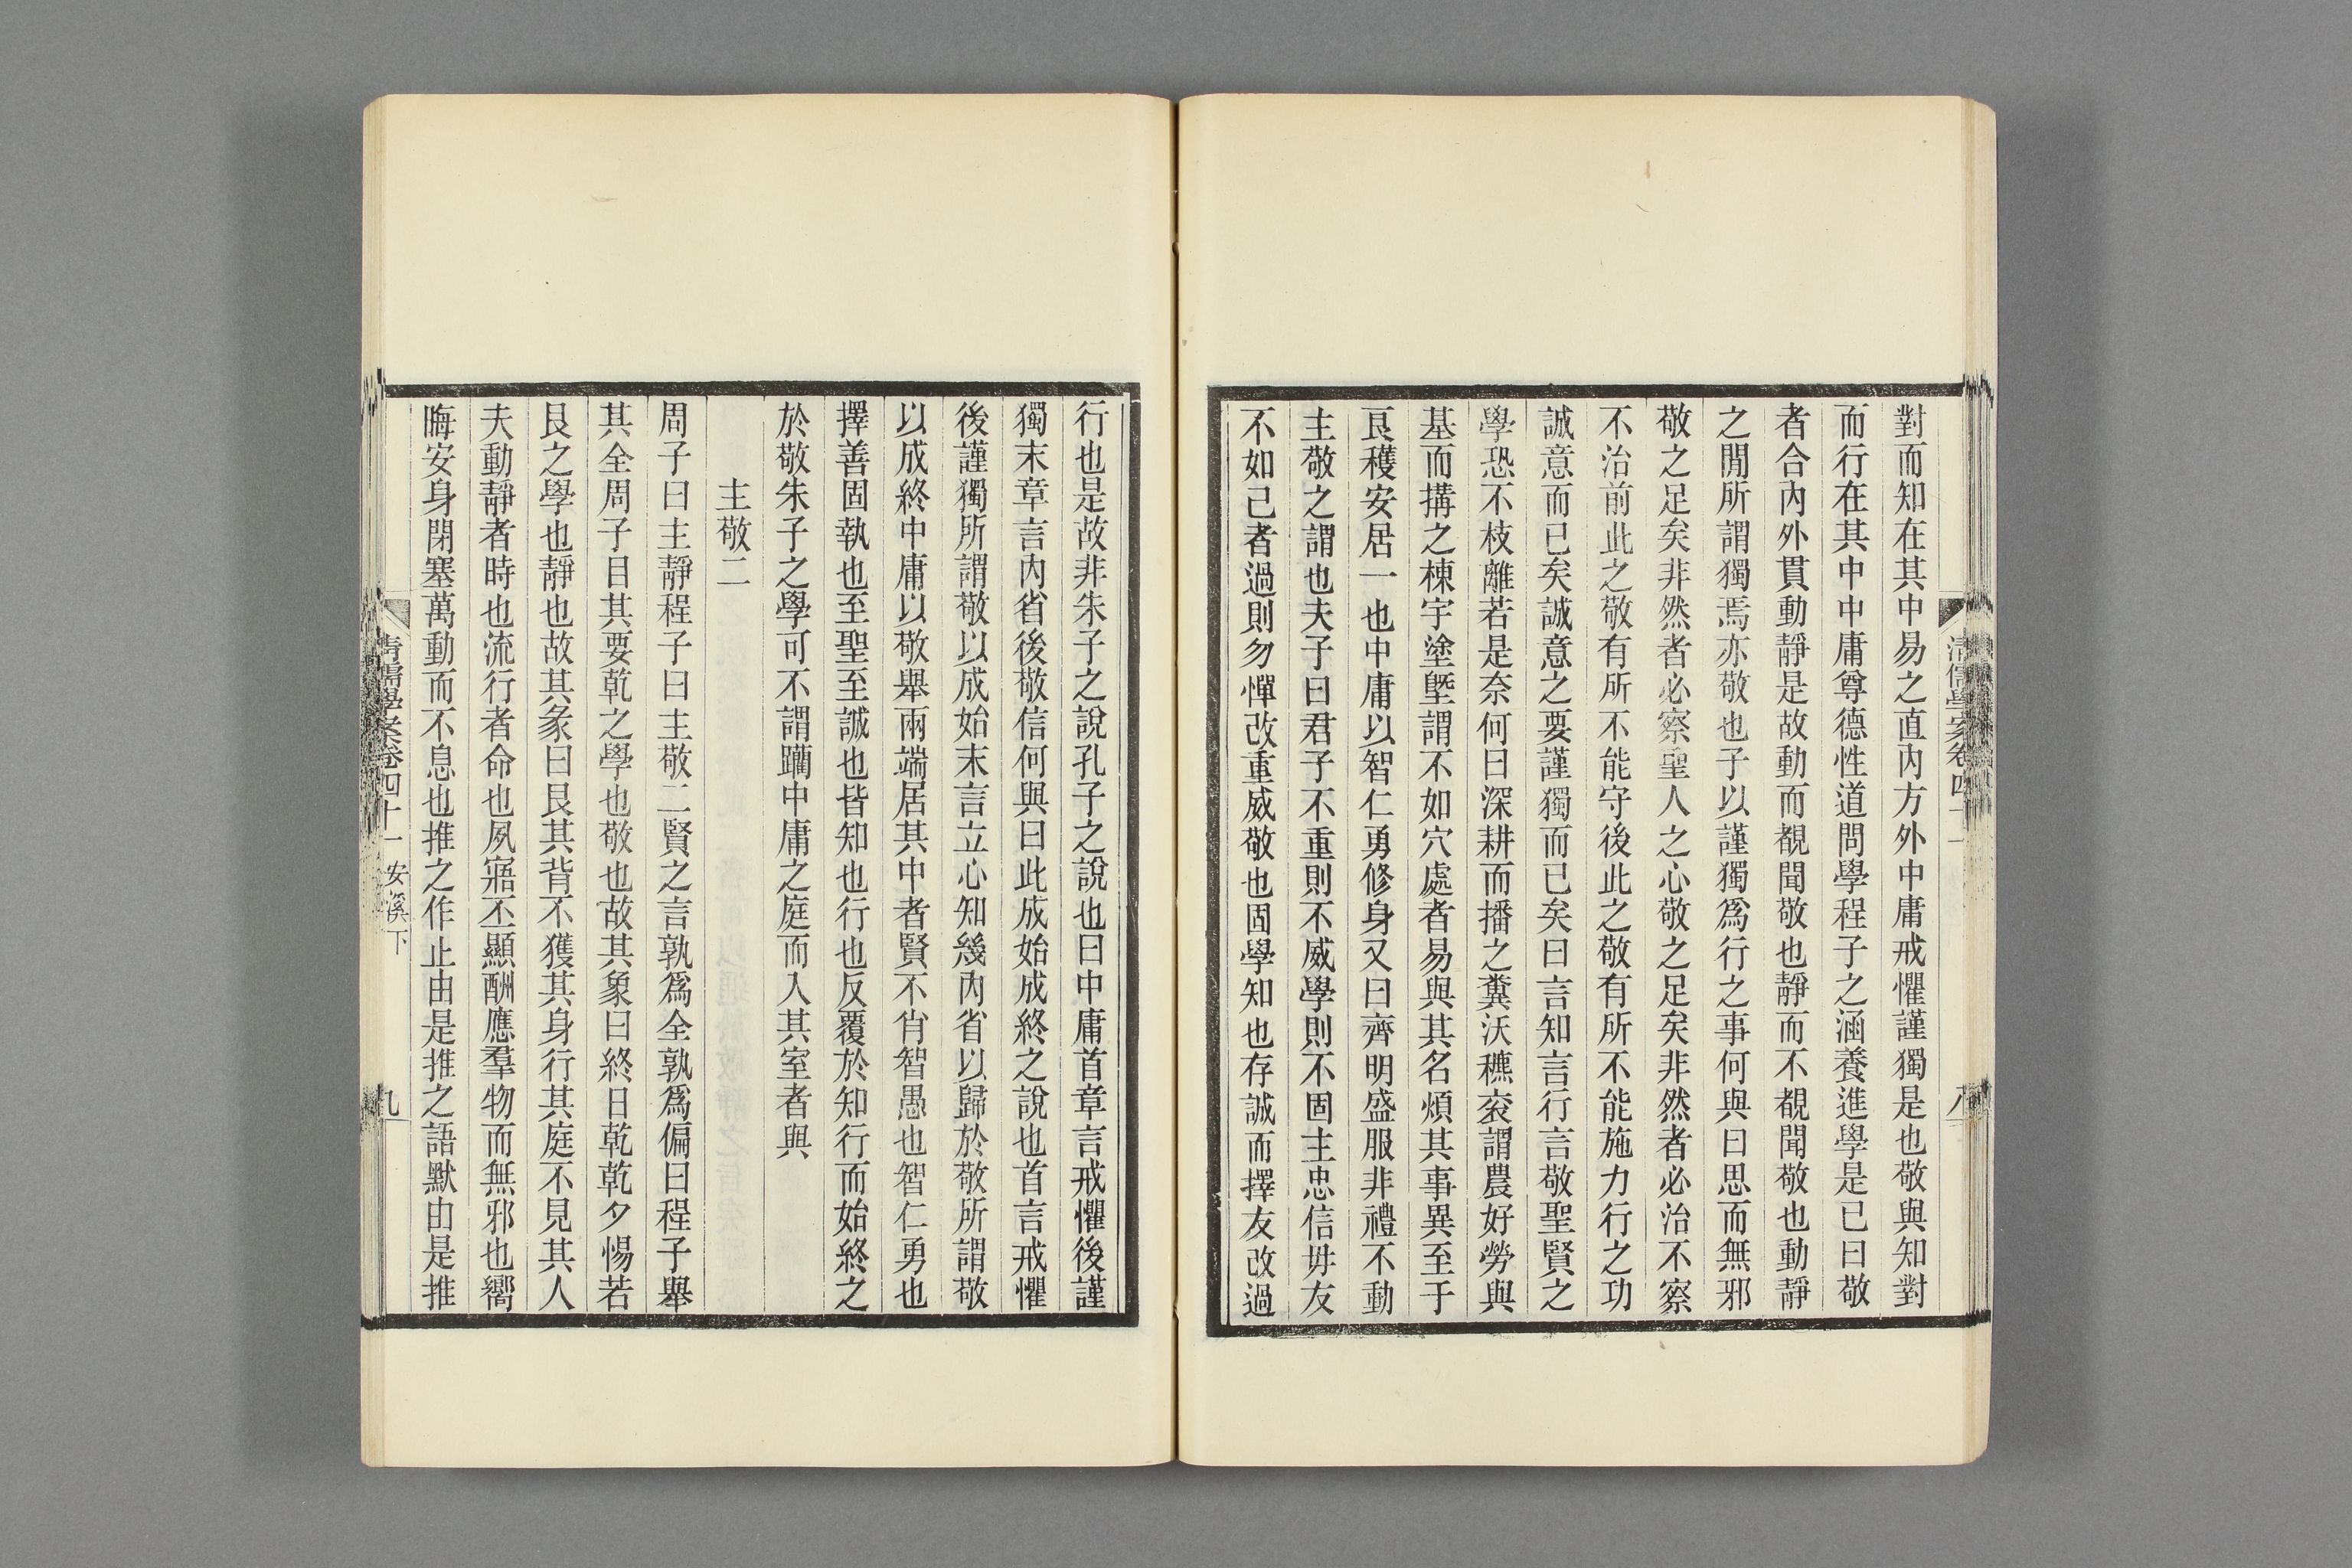 對而知在其中易之直內方外中庸戒懼謹獨是也敬與知對
而行在其中中庸尊德性道問學程子之涵養進學是已曰敬
者合內外貫動靜是故動而覩聞敬也靜而不覩聞敬也動靜
之閒所謂獨焉亦敬也子以謹獨爲行之事何與曰思而無邪
敬之足矣非然者必察聖人之心敬之足矣非然者必治不察
不治前此之敬有所不能守後此之敬有所不能施力行之功
誠意而已矣誠意之要謹獨而已矣曰言知言行言敬聖賢之
學恐不枝離若是奈何曰深耕而播之糞沃穮袞謂農好勞與
基而搆之棟宇塗塈謂不如穴處者易與其名煩其事異至于
艮穫安居一也中庸以智仁勇修身又曰齊明盛服非禮不動
主敬之謂也夫子曰君子不重則不威學則不固主忠信毋友
不如己者過則勿憚改重威敬也固學知也存誠而擇友改過
清儒學案卷四十一
八
行也是故非朱子之說孔子之說也曰中庸首章言戒懼後謹
獨末章言內省後敬信何與曰此成始成終之說也首言戒懼
後謹獨所謂敬以成始末言立心知幾內省以歸於敬所謂敬
以成終中庸以敬舉兩端居其中者賢不肖智愚也智仁勇也
擇善固執也至聖至誠也皆知也行也反覆於知行而始終之
於敬朱子之學可不謂躪中庸之庭而入其室者與
主敬二
周子曰主靜程子曰主敬二賢之言孰爲全孰爲偏曰程子舉
其全周子目其要乾之學也敬也故其象曰終日乾乾夕惕若
艮之學也靜也故其彖曰艮其背不獲其身行其庭不見其人
夫動靜者時也流行者命也夙寤丕顯酬應羣物而無邪也嚮
晦安身閉塞萬動而不息也推之作止由是推之語默由是推
清儒學案卷四十一 安溪下
九